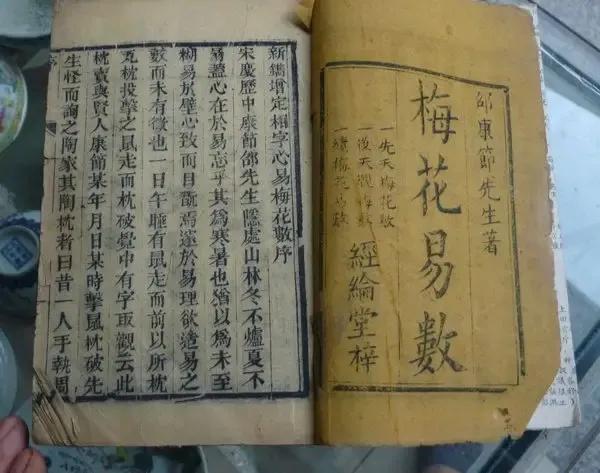 邵康節先生著
梅花易數
一先天梅花數
一後天觀梅數
經綸堂梓
新鐫增定相字心易梅花數序
宋慶歷中康節邵先生隱處山林冬不爐夏不
扇蓋心在於易忘乎其爲寒暑也猶以爲未至
糊易於壁心致而目翫焉邃於易理欲造易之
數而未有徵也一日午睡有鼠走而前以所枕
瓦枕投擊之鼠走而枕破覺中有字取觀云此
枕賣與賢人康節某年月日某時擊鼠枕破先
生怪而詢之陶家其陶枕者曰昔一人手執周
序